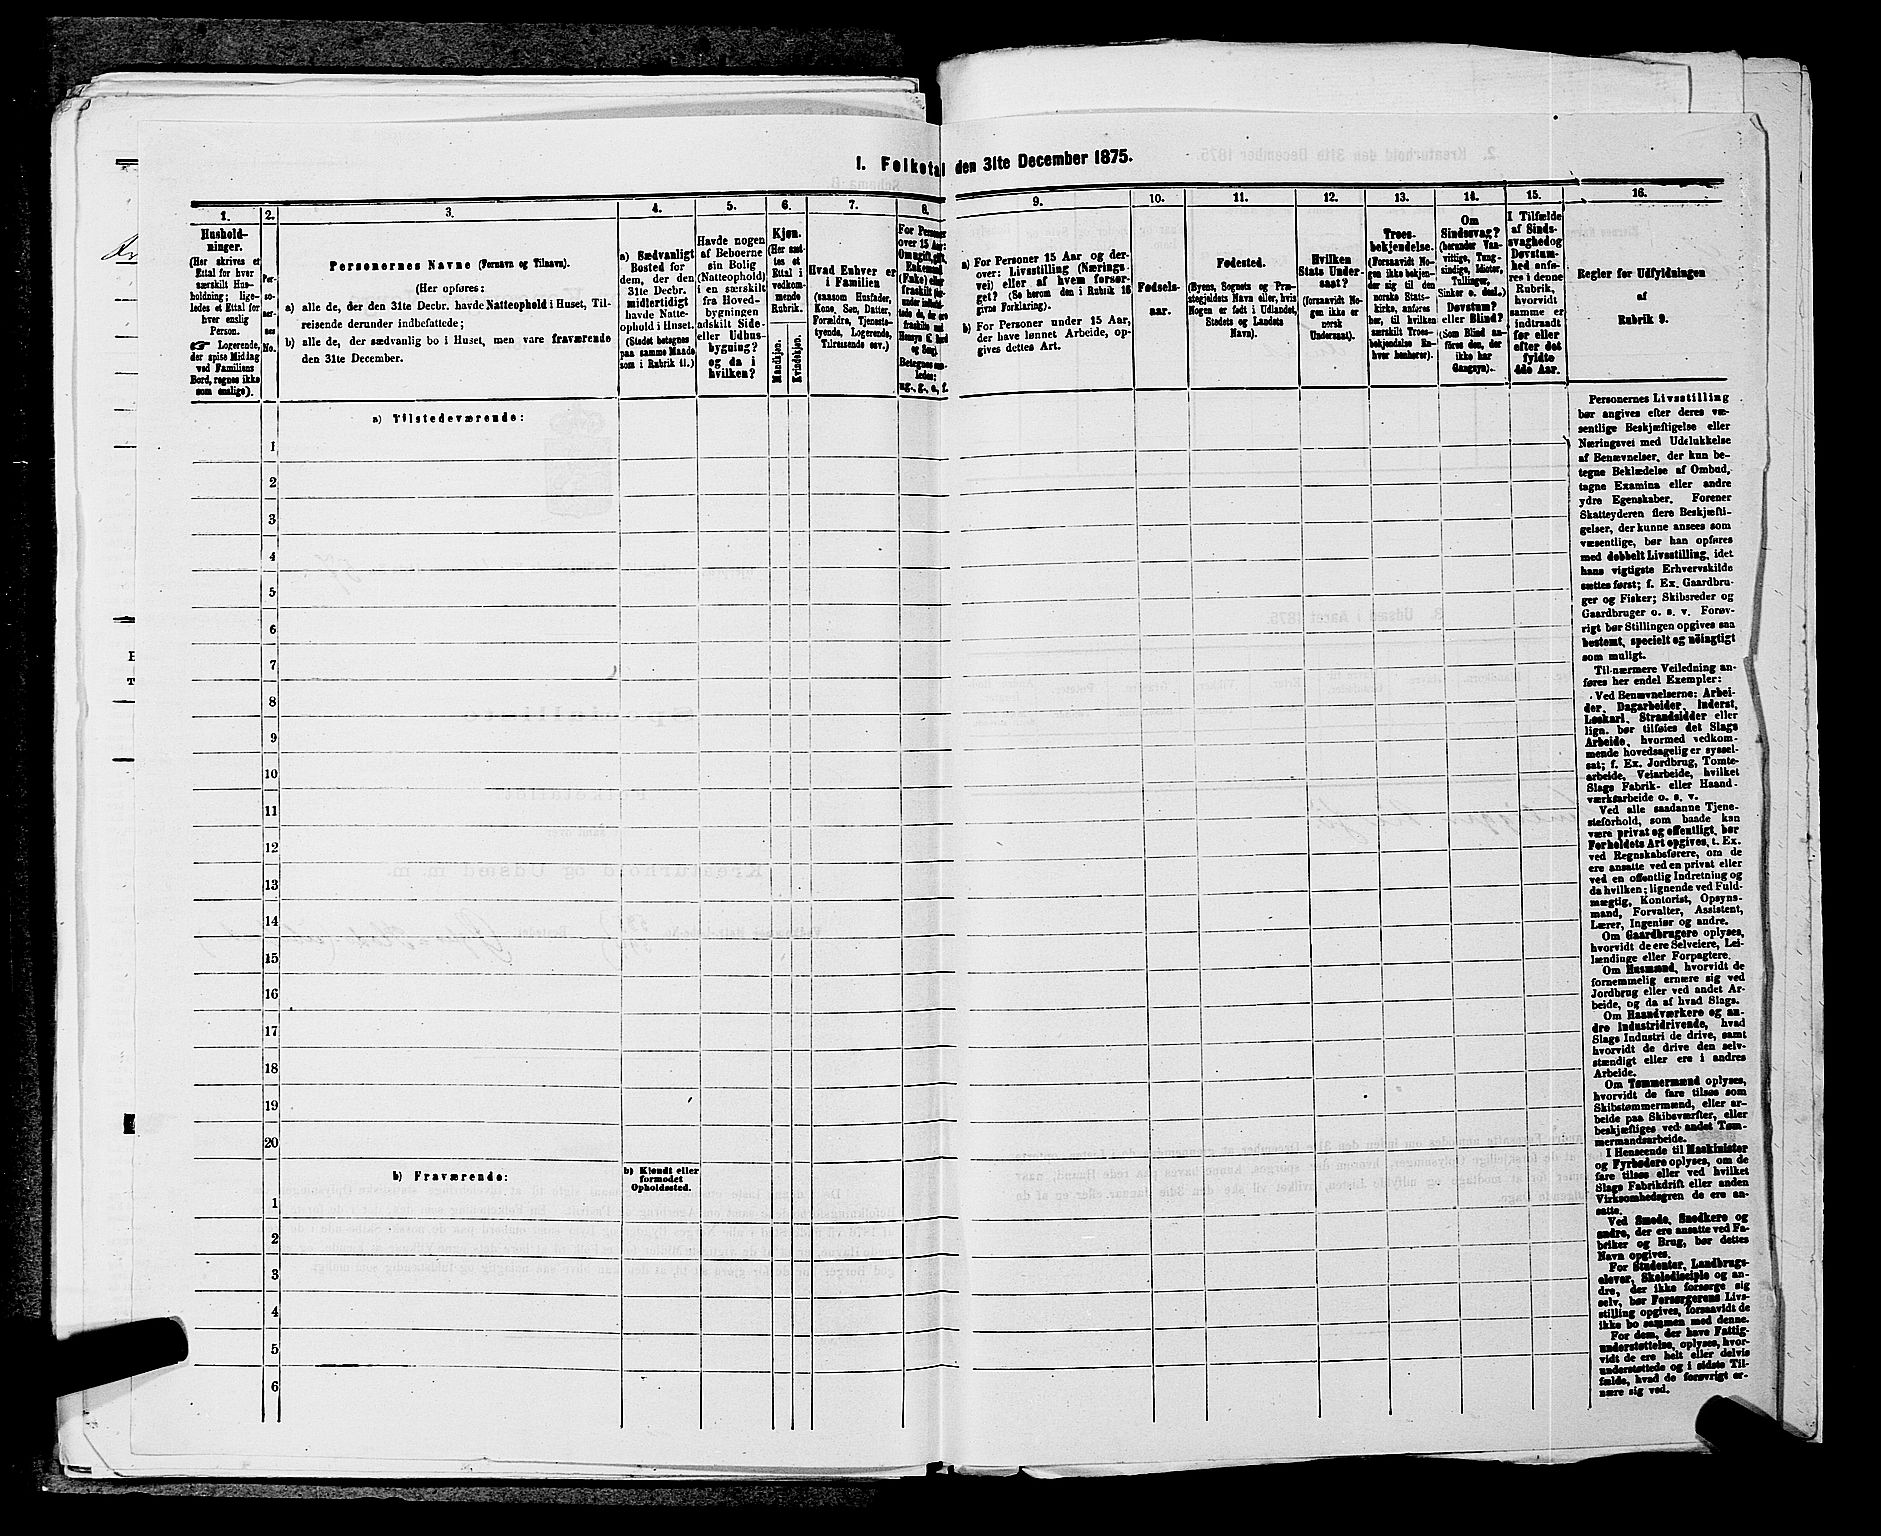 1. Folketal den 31te December 1875.
1.
2.
3.
4.
5.
6.
7.
8.
9.
10.
11.
12.
13.
14.
15.
16.
Hushold-
ninger.
(Her skrives et
Ettal for hver
særskilt Hus-
holdning; lige-
ledes et Ettal for
hver enslig
Person.
☞ Logerende,
der spise Middag
ved Familiens
Bord, regnes ikke
som enslige).
Per-
so-
ner-
nes
No.
Personernes Navne (Fornavn og Tilnavn).
(Her opføres:
a) alle de, der den 31te Decbr. havde Natteophold i Huset, Til-
reisende derunder indbefattede;
b) alle de, der sædvanlig bo i Huset, men vare fraværende
den 31te December.
a) Sædvanligt
Bosted for
dem, der den
31te Decbr.
midlertidigt
havde Natte-
ophold i Huset.
(Stedet betegnes
paa samme Maade
som i Rubrik 11.)
Havde nogen
af Beboerne
sin Bolig
(Natteophold)
i en særskilt
fra Hoved-
bygningen
adskilt Side-
eller Udhus-
bygning?
og da i
hvilken?
Kjøn.
(Her sæt-
tes et
Ettal i
vedkom-
mende
Rubrik.
Mandkjøn.
Kvindekjøn.
Hvad Enhver er
i Familien
(saasom Husfader,
Kone, Søn, Datter,
Forældre, Tjeneste-
tyende, Logerende,
Tilreisende osv.)
For Personer
over 15 Aar:
Om ugift, gift,
Enkemand
(Enke) eller
fraskilt
Betegnes saa-
ledes:
ug., g., e., f.
a) For Personer 15 Aar og der-
over: Livsstilling (Nærings-
vei) eller af hvem forsør-
get? (Se herom den i Rubrik 16
givne Forklaring).
b) For Personer under 15 Aar,
der have lønnet Arbeide, op-
gives dettes Art.
Fødsels-
aar.
Fødested.
(Byens, Sognets og Præ-
stegjeldets Navn eller, hvis
Nogen er født i Udlandet,
Stedets og Landets
Navn).
Hvilken
Stats Under-
saat?
(forsaavidt No-
gen ikke er
norsk
Undersaat).
Troes-
bekjendelse.
(Forsaavidt No-
gen ikke bekjen-
der sig til den
norske Stats-
kirke, anføres
her, til hvilken
særskilt Troes-
bekjendelse En-
hver henhører).
Om
Sindssvag?
(herunder Van-
vittige, Tung-
sindige, Idioter,
Tullinger,
Sinker o. desl.)
Døvstum?
eller Blind?
(Som Blind an-
føres den, der
ikke har
Gangsyn).
I Tilfælde
af Sinds-
svaghed og
Døvstum-
hed anfø-
res i denne
Rubrik,
hvorvidt
samme er
indtraadt
før eller
efter det
fyldte
4de Aar.
Regler for Udfyldningen
af
Rubrik 9.
a) Tilstedeværende:
1
2
3
4
5
6
7
8
9
10
11
12
13
14
15
16
17
18
19
20
b) Fraværende:
b) Kjendt eller
formodet
Opholdssted.
1
2
3
4
5
6
Personernes Livsstilling
bør angives efter deres væ-
sentlige Beskjæftigelse eller
Næringsvei med Udelukkelse
af Benævnelser, der kun be-
tegne Beklædelse af Ombud,
tagne Examina eller andre
ydre Egenskaber. Forener
Skatteyderen flere Beskjæfti-
gelser, der kunne ansees som
væsentlige, bør han opføres
med dobbelt Livsstilling, idet
hans vigtigste Erhvervskilde
sættes først; f. Ex. Gaardbru-
ger og Fisker; Skibsreder og
Gaardbruger o. s. v. Forøv-
rigt bør Stillingen opgives saa
bestemt, specielt og nöiagtigt
som muligt.
Til nærmere Veiledning an-
føres her endel Exempler:
Ved Benævnelserne: Arbei-
der, Dagarbeider, Inderst,
Løskarl, Strandsidder eller
lign. bør tilføies det Slags
Arbeide, hvormed vedkom-
mende hovedsagelig er syssel-
sat; f. Ex. Jordbrug, Tomte-
arbeide, Veiarbeide, hvilket
Slags Fabrik- eller Haand-
værksarbeide o. s. v.
Ved alle saadanne Tjene-
steforhold, som baade kan
være privat og offentligt, bør
Forholdets Art opgives, t. Ex.
ved Regnskabsførere, om de
ere ansatte ved en privat eller
ved en offentlig Indretning og
da hvilken; lignende ved Fuld-
mægtig, Kontorist, Opsyns-
mand, Forvalter, Assistent,
Lærer, Ingeniør og andre.
Om Gaardbrugere oplyses,
hvorvidt de ere Selveiere, Lei-
lændinge eller Forpagtere.
Om Husmænd, hvorvidt de
fornemmelig ernære sig ved
Jordbrug eller ved andet Ar-
beide, og da af hvad Slags.
Om Haandværkere og an-
dre Industridrivende, hvad
Slags Industri de drive, samt
hvorvidt de drive den selv-
stændigt eller ere i andres
Arbeide.
Om Tømmermænd oplyses,
hvorvidt de fare tilsøs som
Skibstømmermænd, eller ar-
beide paa Skibsværfter, eller
beskjæftiges ved andet Tøm-
mermandsarbeide.
I Henseende til Maskinister
og Fyrbødere oplyses, om de
fare tilsøs eller ved hvilket
Slags Fabrikdrift eller anden
Virksomhedsgren de ere an-
satte.
Ved Smede, Snedkere og
andre, der ere ansatte ved Fa-
briker og Brug, bør dettes
Navn opgives.
For Studenter, Landbrugs-
elever, Skoledisciple og an-
dre, der ikke forsørge sig
selv, bør Forsørgerens Livs-
stilling opgives, forsaavidt de
ikke bo sammen med denne.
For dem, der have Fattig-
understøttelse, oplyses, hvor-
vidt de ere helt eller delvis
understøttede og i sidste Til-
fælde, hvad de forøvrigt er-
nære sig ved.